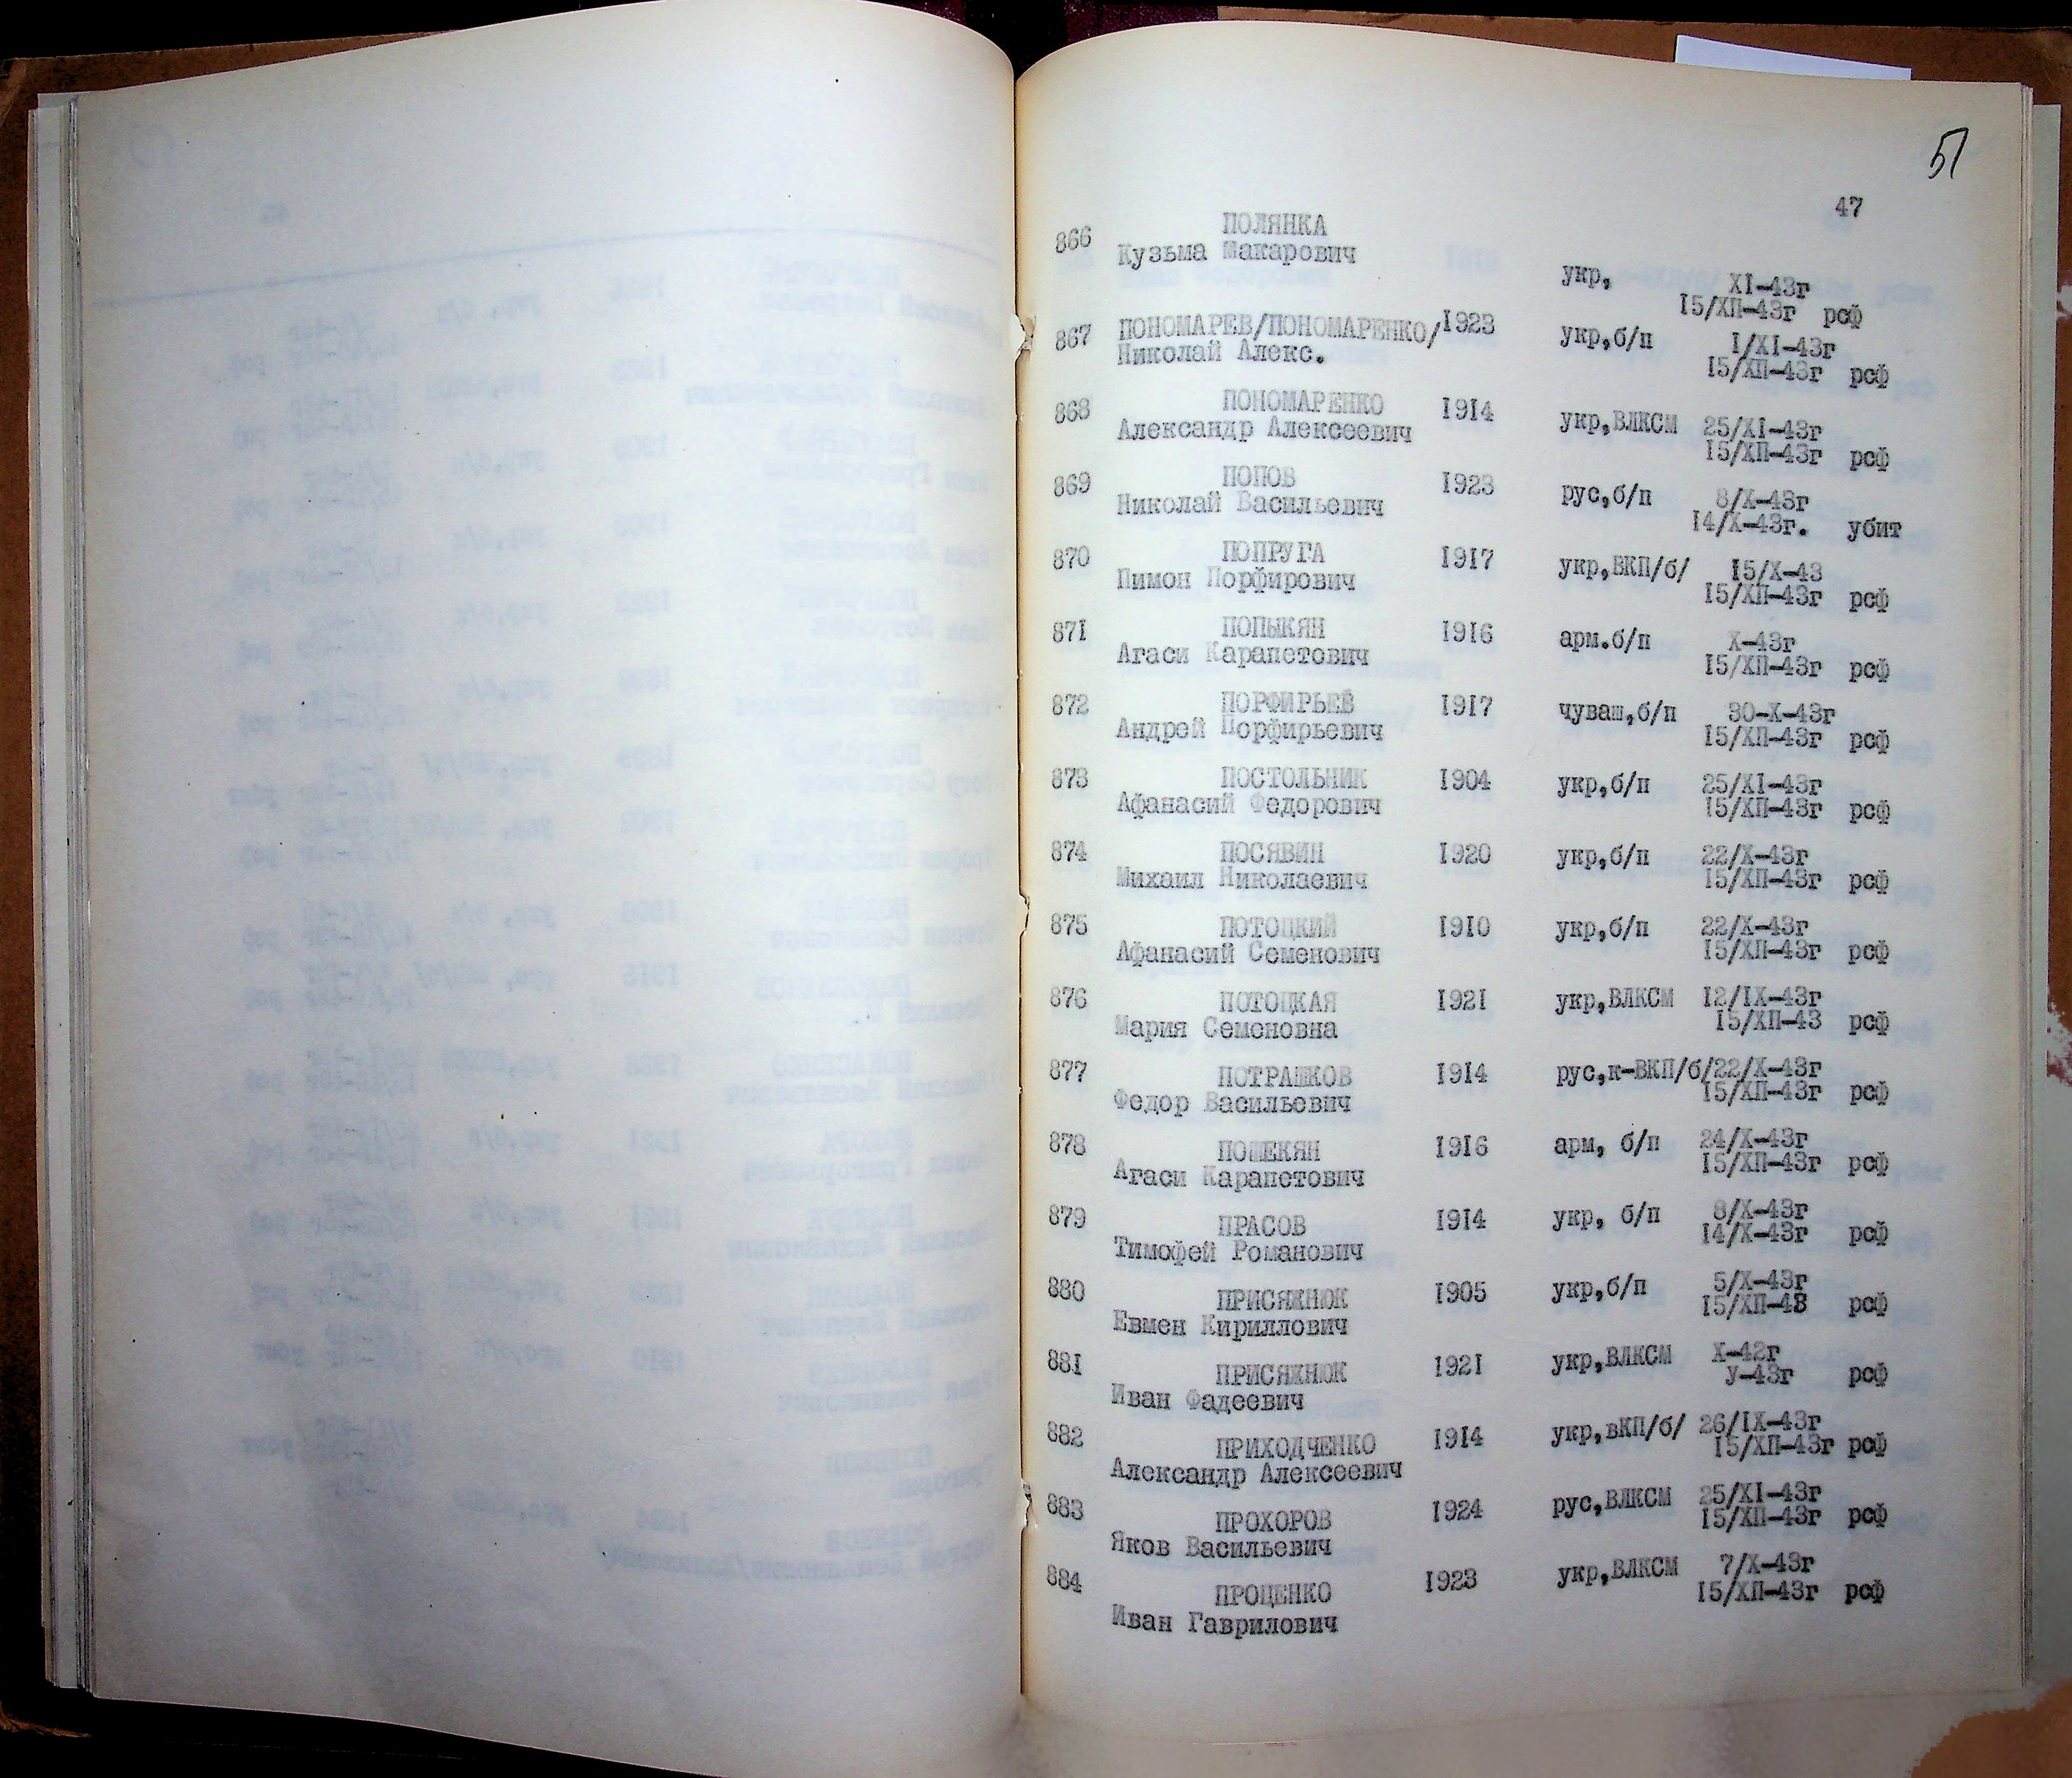 51
47
866 ПОЛЯНКА
Кузьма Макарович
укр, XI-43г
15/ХП-43г рсф
867 ПОНОМАРЕВ/ПОНОМАРЕНКО/ 1923 укр,б/п 1/XI-43г
Николай Алекс. 15/ХП-43г рсф
868 ПОНОМАРЕНКО 1914 укр,ВЛКСМ 25/XI-43г
Александр Алексеевич 15/ХП-43г рсф
869 ПОПОВ 1923 рус,б/п 8/Х-43г
Николай Васильевич 14/Х-43г. убит
870 ПОПРУГА 1917 укр,ВКП/б/ 15/Х-43
Пимон Порфирович 15/ХП-43г рсф
871 ПОПЫКЯН 1916 арм.б/п Х-43г
Агаси Карапетович 15/ХП-43г рсф
872 ПОРФИРЬЕВ 1917 чуваш,б/п 30-Х-43г
Андрей Порфирьевич 15/ХП-43г рсф
873 ПОСТОЛЬНИК 1904 укр,б/п 25/XI-43г
Афанасий Федорович 15/ХП-43г рсф
874 ПОСЯВИН 1920 укр,б/п 22/Х-43г
Михаил Николаевич 15/ХП-43г рсф
875 ПОТОЦКИЙ 1910 укр,б/п 22/Х-43г
Афанасий Семенович 15/ХП-43г рсф
876 ПОТОЦКАЯ 1921 укр,ВЛКСМ 12/IX-43г
Мария Семеновна 15/ХП-43 рсф
877 ПОТРАШКОВ 1914 рус,к-ВКП/б/22/Х-43г
Федор Васильевич 15/ХП-43г рсф
878 ПОШЕКЯН 1916 арм, б/п 24/Х-43г
Агаси Карапетович 15/ХП-43г рсф
879 ПРАСОВ 1914 укр, б/п 8/Х-43г
Тимофей Романович 14/Х-43г рсф
880 ПРИСЯЖНЮК 1905 укр,б/п 5/Х-43г
Евмен Кириллович 15/ХП-43 рсф
881 ПРИСЯЖНЮК 1921 укр,ВЛКСМ Х-42г
Иван Фадеевич У-43г рсф
882 ПРИХОДЧЕНКО 1914 укр,вКП/б/ 26/IX-43г
Александр Алексеевич 15/ХП-43г рсф
883 ПРОХОРОВ 1924 рус,ВЛКСМ 25/XI-43г
Яков Васильевич 15/ХП-43г рсф
884 ПРОЦЕНКО 1923 укр,ВЛКСМ 7/Х-43г
Иван Гаврилович 15/ХП-43г рсф